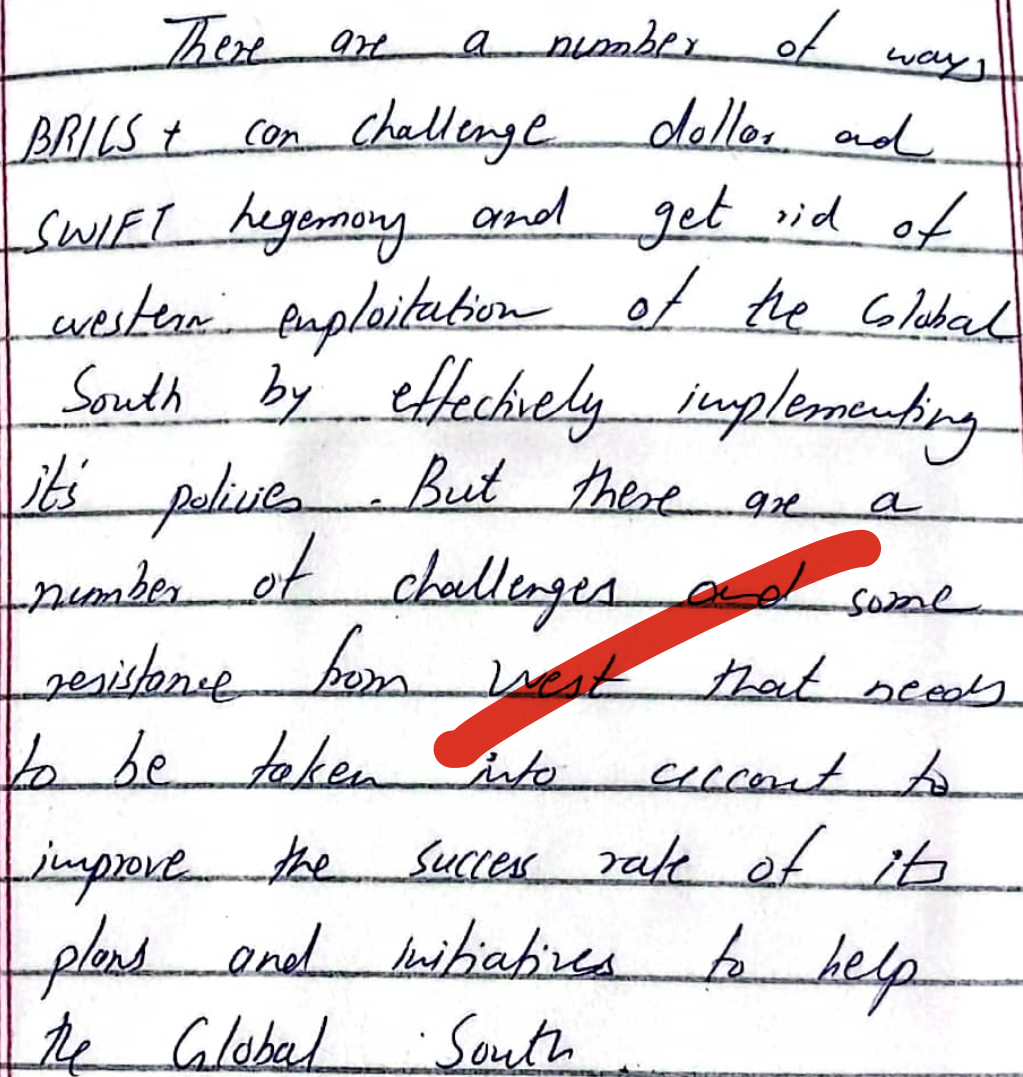 There are a number of ways
BRICS + can challenge dollar ad
SWIFT hegemony and get rid of
western exploitation of the Global
South by effectively implementing
it's policies. But there are a
number of challenges and some
resistance from west that needs
to be taken into account to
improve the success rate of its
plans and initiatives to help
the Global South.